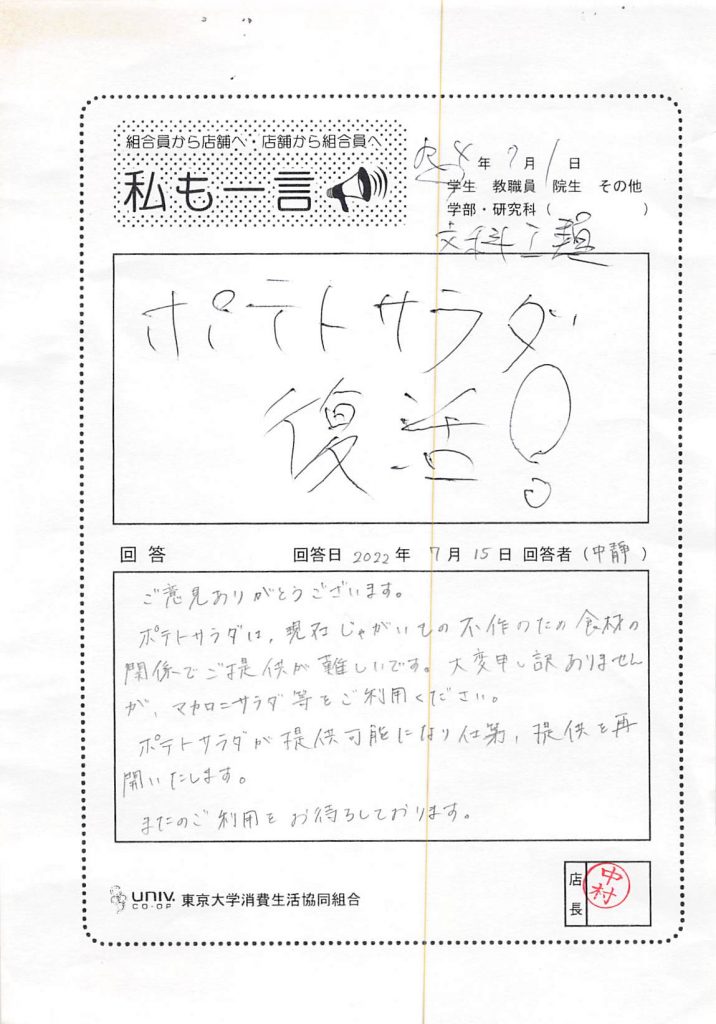 組合員から店舗へ・店舗から組合員へ
私も一言
R4年7月1日
学生 教職員 院生 その他
学部・研究科( )
文科工類
ポテトサラダ
復活!
回答 回答日 2022年 7月15日 回答者(中静)
ご意見ありがとうございます。
ポテトサラダは、現在じゃがいもの不作のため食材の
関係でご提供が難しいです。大変申し訳ありません
が、マカロニサラダ等をご利用ください。
ポテトサラダが提供可能になり仕第、提供を再
開いたします。
またのご利用をお待ちしております。
店長
中村
UNIV. CO-OP 東京大学消費生活協同組合